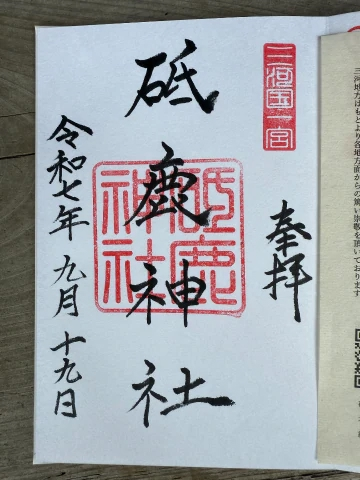 三河国一宮
奉拝
砥鹿神社
砥鹿
神社
令和七年 九月 十九日
三河地方はもとより各地方面からの篤い崇敬を頂いております